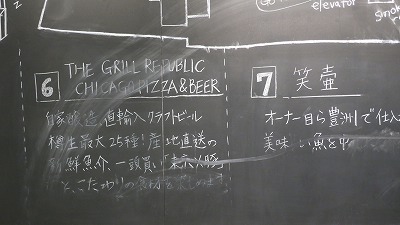 elevator
smok
6
THE GRILL REPUBLIC
CHICAGO PIZZA & BEER
自家醸造、直輸入クラフトビール
樽生最大25種！産地直送の
新鮮魚介、一頭買い「東京X豚」
と、こだわりの食材を楽しめます
7 笑壷
オーナー自ら豊洲で仕入
美味しい魚を中